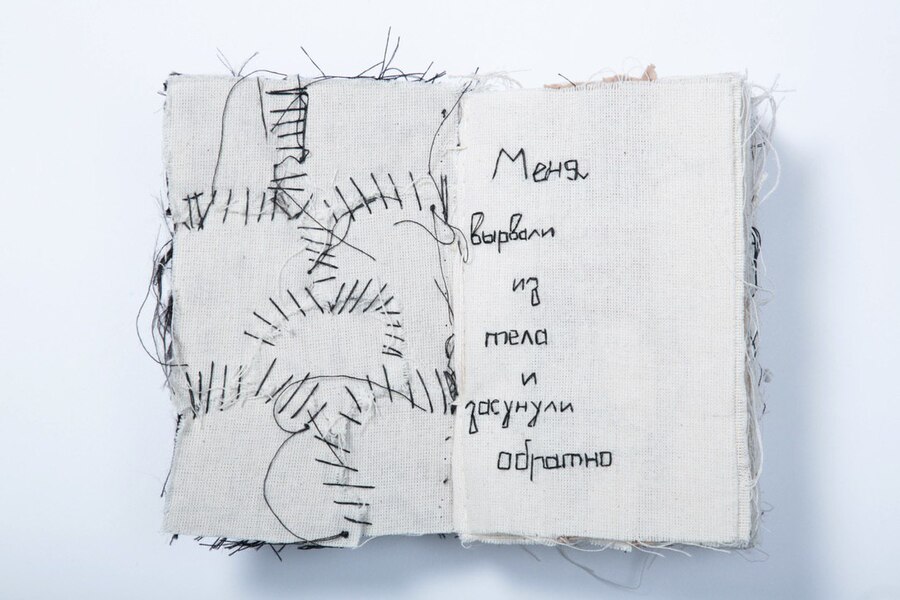 Меня
вырвали
из
тела
и
засунули
обратно